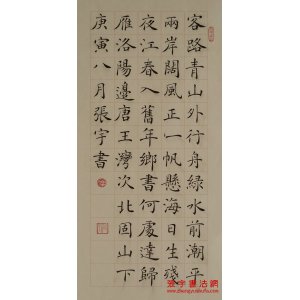 客路青山外行舟綠水前潮平
兩岸闊風正一帆懸海日生殘
夜江春入舊年鄉書何處達歸
雁洛陽邊唐王灣次北固山下
庚寅八月張宇書
張宇書法網
www.zhangyushufa.com